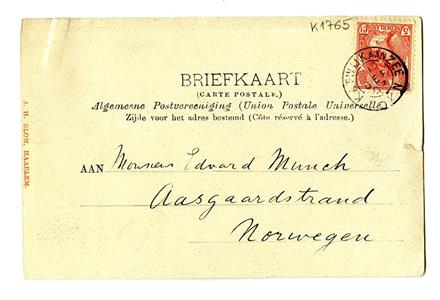 K1765
KATWIJK AAN ZEE
BRIEFKAART
(CARTE POSTALE.)
Algemeene Postvereeniging (Union Postale Universelle)
Zijde voor het adres bestemd (Côté réservé à l'adresse.)
AAN Monsieur Edvard Munch
Aasgaardstrand
Norwegen
J. H. BLOM, HAARLEM.